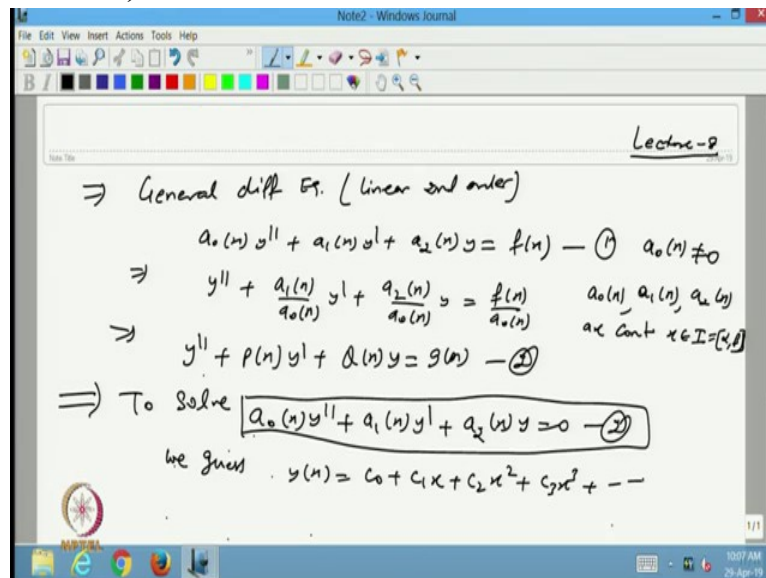 Note2 - Windows Journal
File Edit View Insert Actions Tools Help
B I
Note Title
Lecture-8
29-Apr-19
⇒ General diff Eq. (linear 2nd order)
a₀(x) y'' + a₁(x) y' + a₂(x) y = f(x) — ① a₀(x) ≠ 0
⇒ y'' + a₁(x)/a₀(x) y' + a₂(x)/a₀(x) y = f(x)/a₀(x) a₀(x), a₁(x), a₂(x)
are cont x ∈ I = [α, β]
⇒ y'' + P(x) y' + Q(x) y = g(x) — ②
⇒ To solve a₀(x) y'' + a₁(x) y' + a₂(x) y = 0 — ②
we guess y(x) = c₀ + c₁x + c₂x² + c₃x³ + - -
1/1
10:07 AM
29-Apr-19